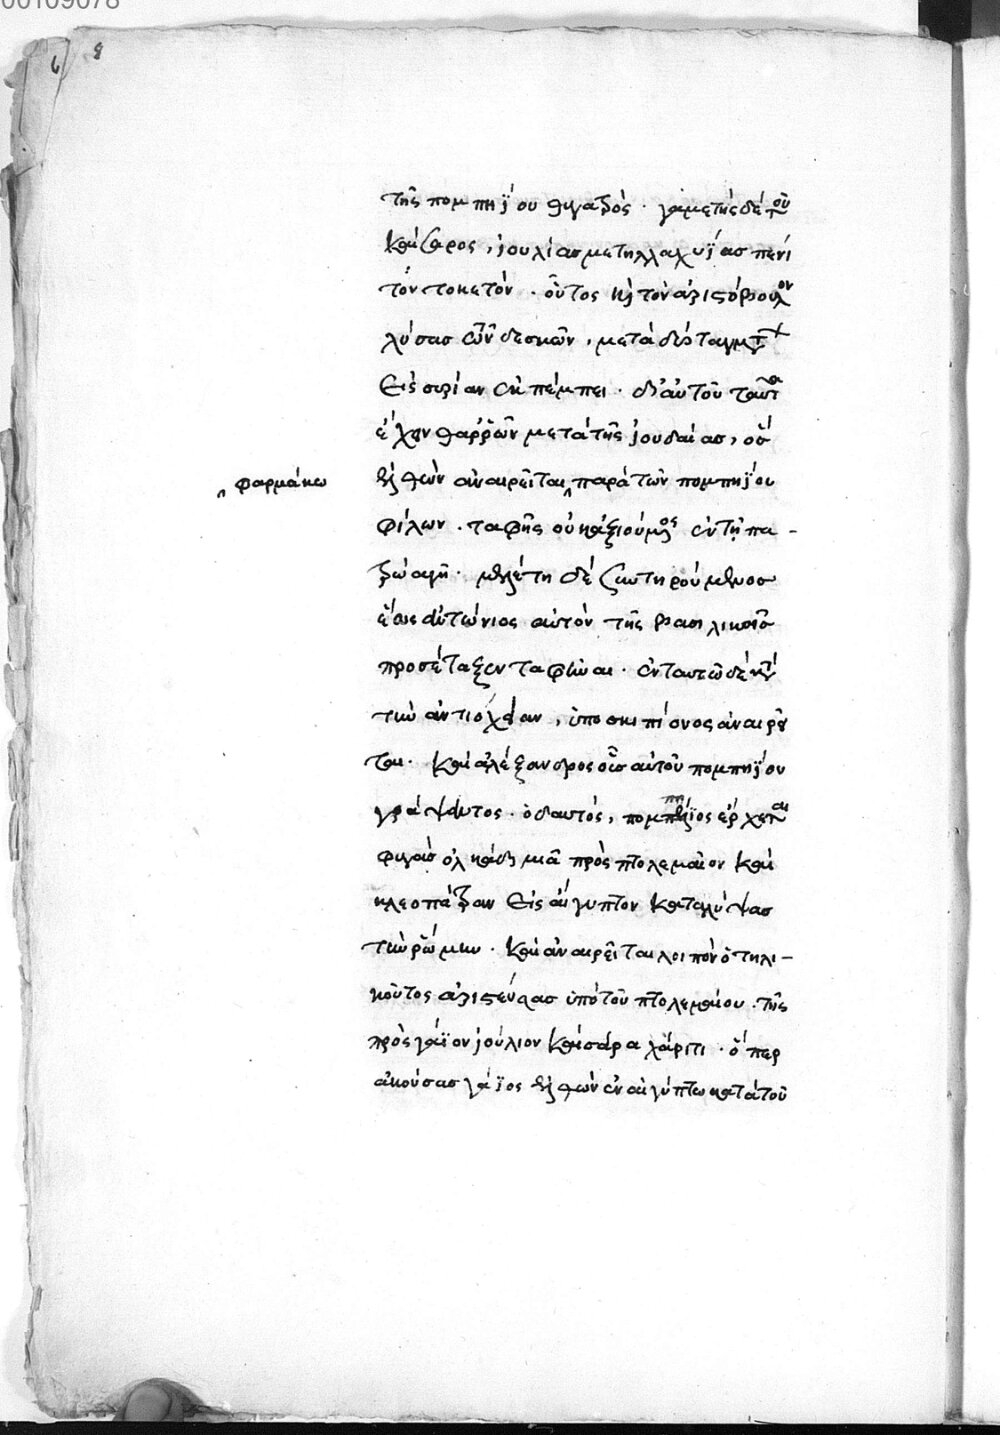 00109078
6 8
τῆς πομπηΐου θυγατρὸς · γαμετῆς δὲ τοῦ
καίσαρος, ἰουλίας μετηλλαχυΐας περὶ
τὸν τοκετόν · οὗτος καὶ τὸν ἀριστόβουλον
λύσας τῶν δεσμῶν, μετὰ δύο ταγμάτων
εἰς συρίαν ἐκπέμπει · δι' αὐτοῦ ταύτην
ἔχειν θαρρῶν μετὰ τῆς ἰουδαίας, ὃς
ἐλθὼν ἀναιρεῖται παρὰ τῶν πομπηΐου
φαρμάκω
φίλων · ταφῆς οὐκ ἀξιούμενος ἐν τῆ πα-
τρώα γῆ · μέλιτι δὲ συντηρούμενος
ἕως ἀντώνιος αὐτὸν τῆς βασιλικοῖς
προσέταξεν ταφῆναι · ἐν ταυτῶ δὲ κατὰ
τὴν ἀντιόχειαν, ὑπὸ σκιπίονος ἀναιρεῖ
ται · καὶ ἀλέξανδρος υἱὸς αὐτοῦ πομπηΐου
γράψαντος · ὁ δ' αὐτός, πομπήϊος ἔρχεται
φυγὰς ὁλκάδι μιᾶ πρὸς πτολεμαῖον καὶ
κλεοπάτραν εἰς αἴγυπτον καταλείψας
τὴν ῥώμην · καὶ ἀναιρεῖται λοιπὸν ὁ τηλι-
κοῦτος ἀριστεύσας ὑπὸ τοῦ πτολεμαίου · τῆς
πρὸς γάϊον ἰούλιον καίσαρα χάριτι · ὅπερ
ἀκούσας γάϊος ἐλθὼν ἐν αἰγύπτω κατὰ τοῦ